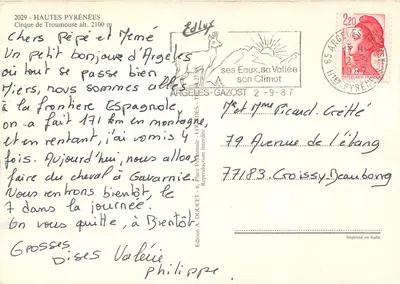 2029 - HAUTES PYRÉNÉES
Cirque de Troumouse alt. 2100 m
Chers Pépé et Mémé
Un petit bonjour d'Argeles
où tout se passe bien
Hiers, nous sommes allés
à la frontière Espagnole,
on a fait 171 km en montagne,
et en rentrant, j'ai vomis 4
fois. Aujourd'hui, nous allons
faire du cheval à Gavarnie.
Nous rentrons bientôt, le
7 dans la journée.
On vous quitte, à Bientôt
Grosses
Bises Valérie
Philippe
ses Eaux, sa Vallée
son Climat
ARGELES-GAZOST 2-9-87
2,20
65 ARGELES
Htes PYRENEES
Mr et Mme Picard-
79 Avenue de l'étang
77183 Croissy-Beaubourg
Edition A. DOUCET - 6, Place
Reproduction
Imprimé en Italie